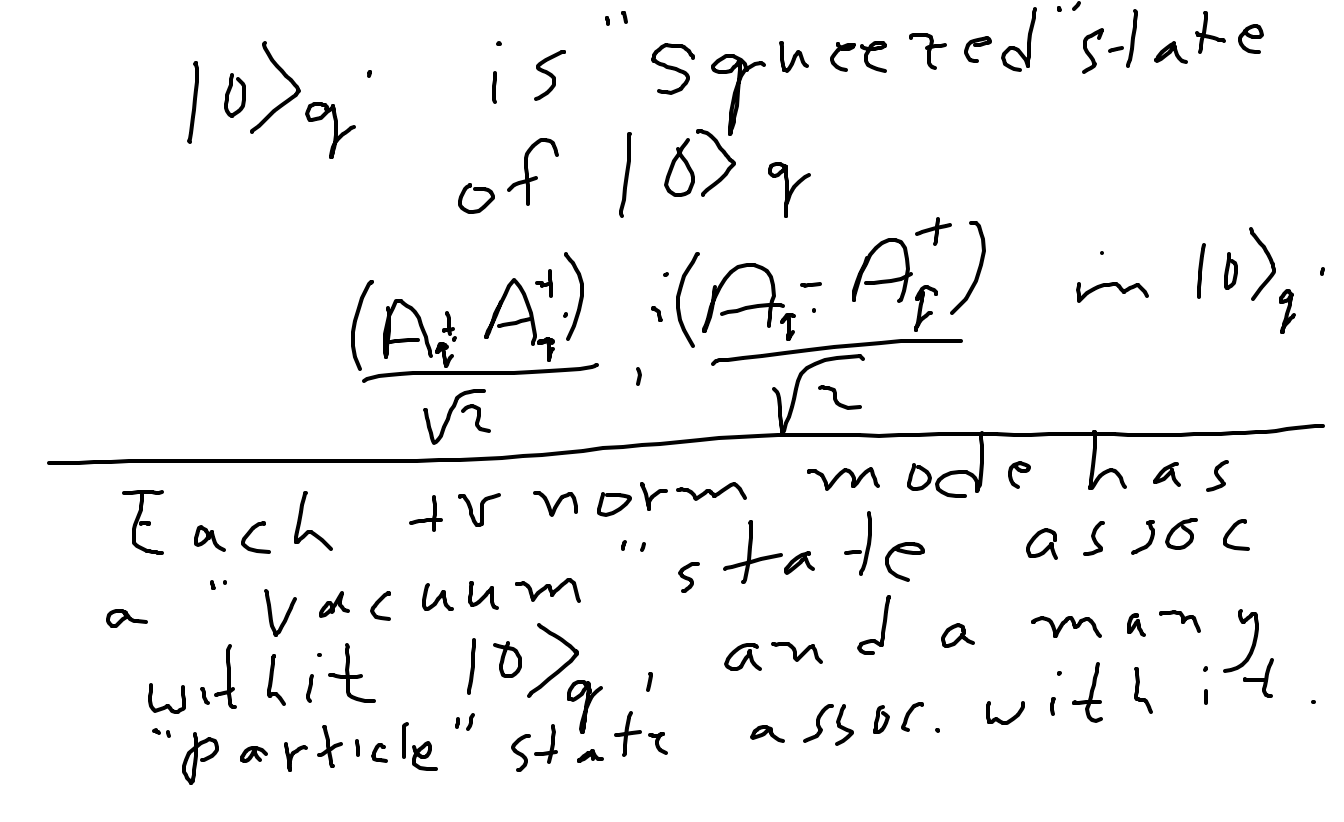 |0>q' is "squeezed" state
of |0>q
(Aq + Aq†)/√2 , i(Aq - Aq†)/√2 in |0>q'
Each +v norm mode has
a "vacuum" state assoc
with it |0>q, and a many
"particle" state assoc. with it.